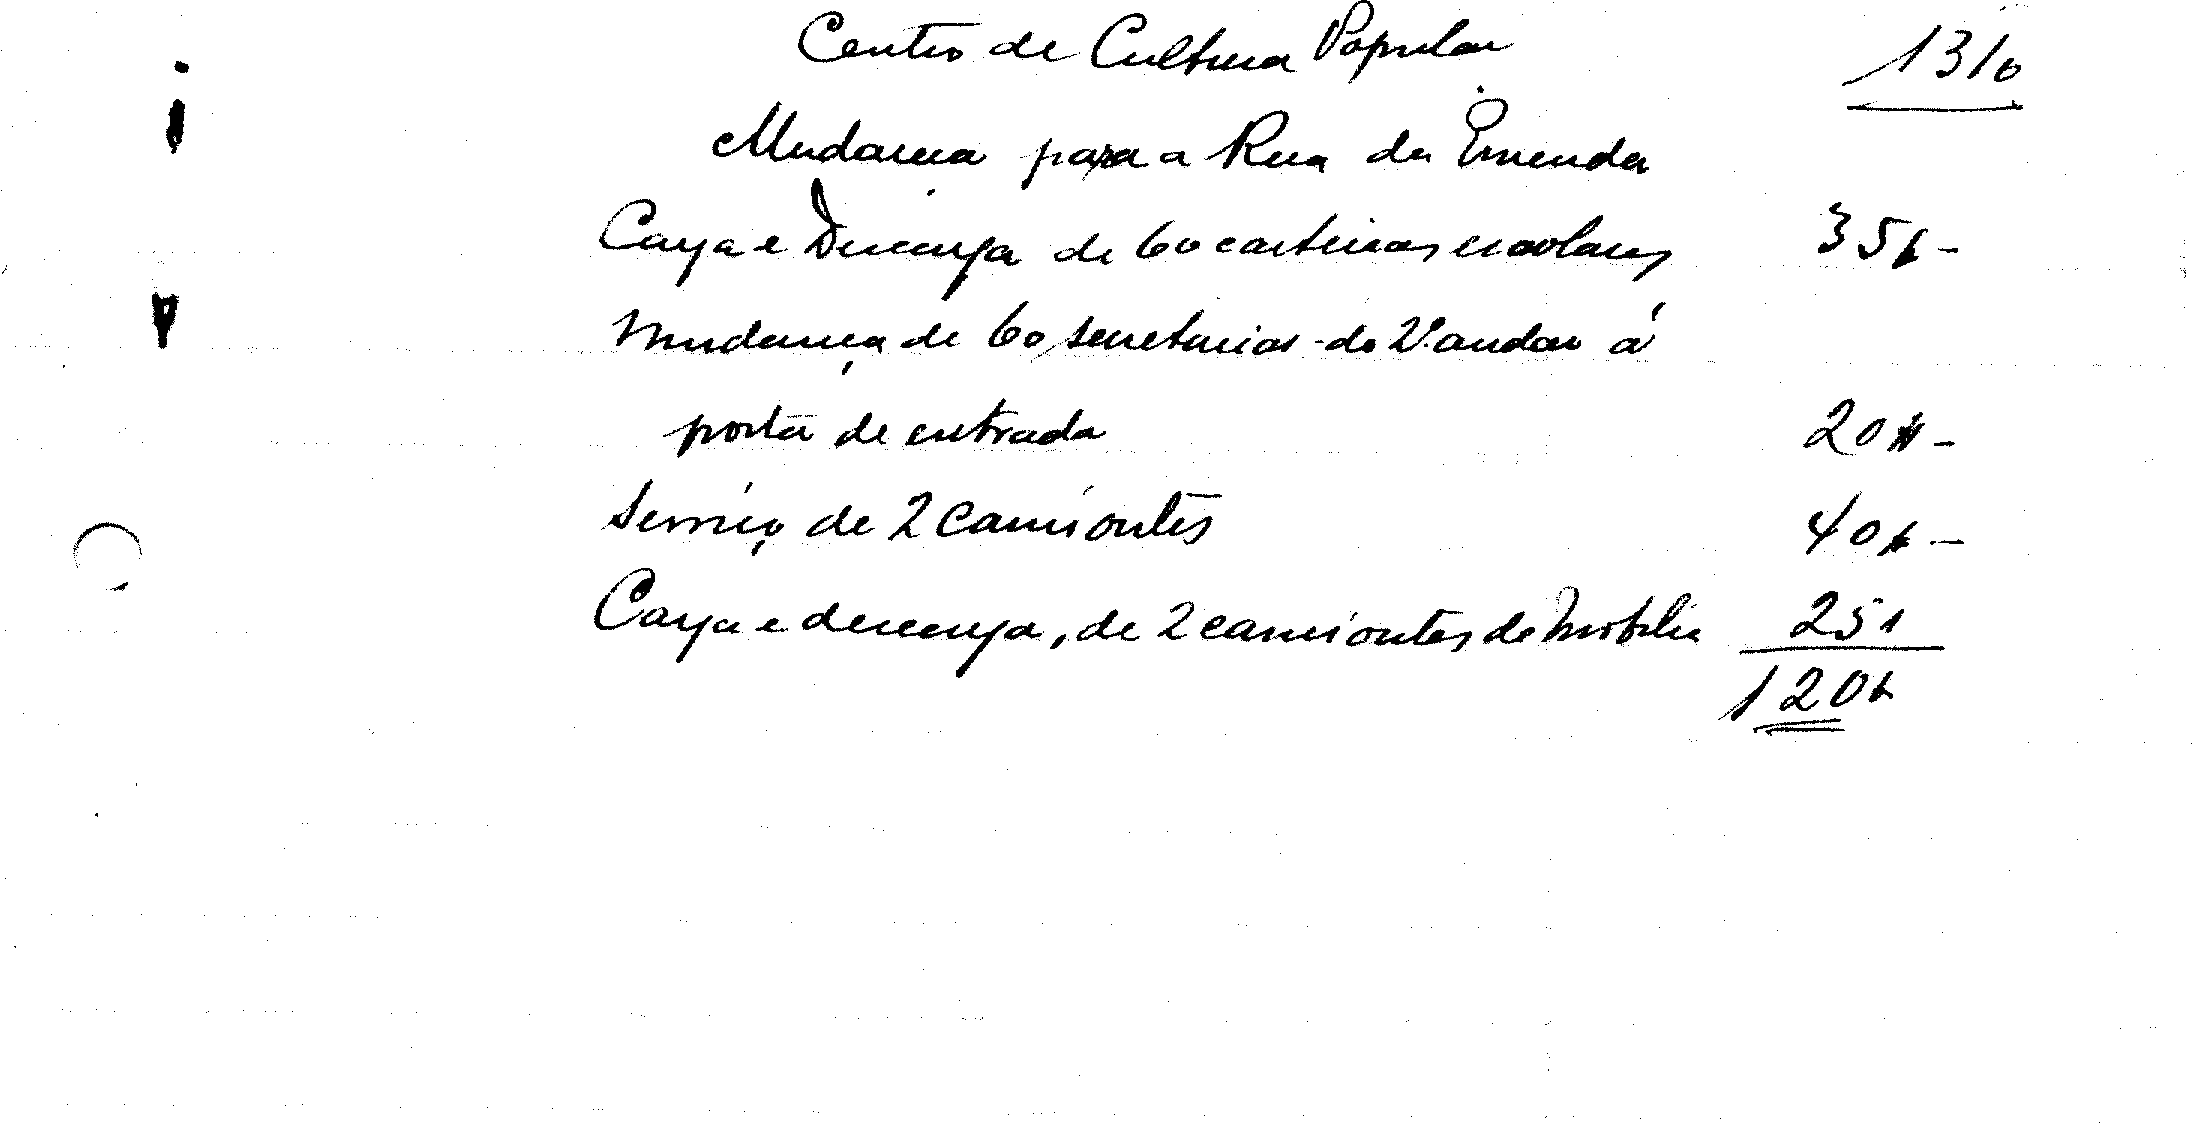 Centro de Cultura Popular 1310
Mudança para a Rua da Emenda
Carga e Descarga de 60 carteiras escolares 35$-
Mudança de 60 secretarias do 2º andar á
porta de entrada 20$-
Serviço de 2 camiontes 40$-
Carga e descarga, de 2 camiontes de mobilia 25$
120$